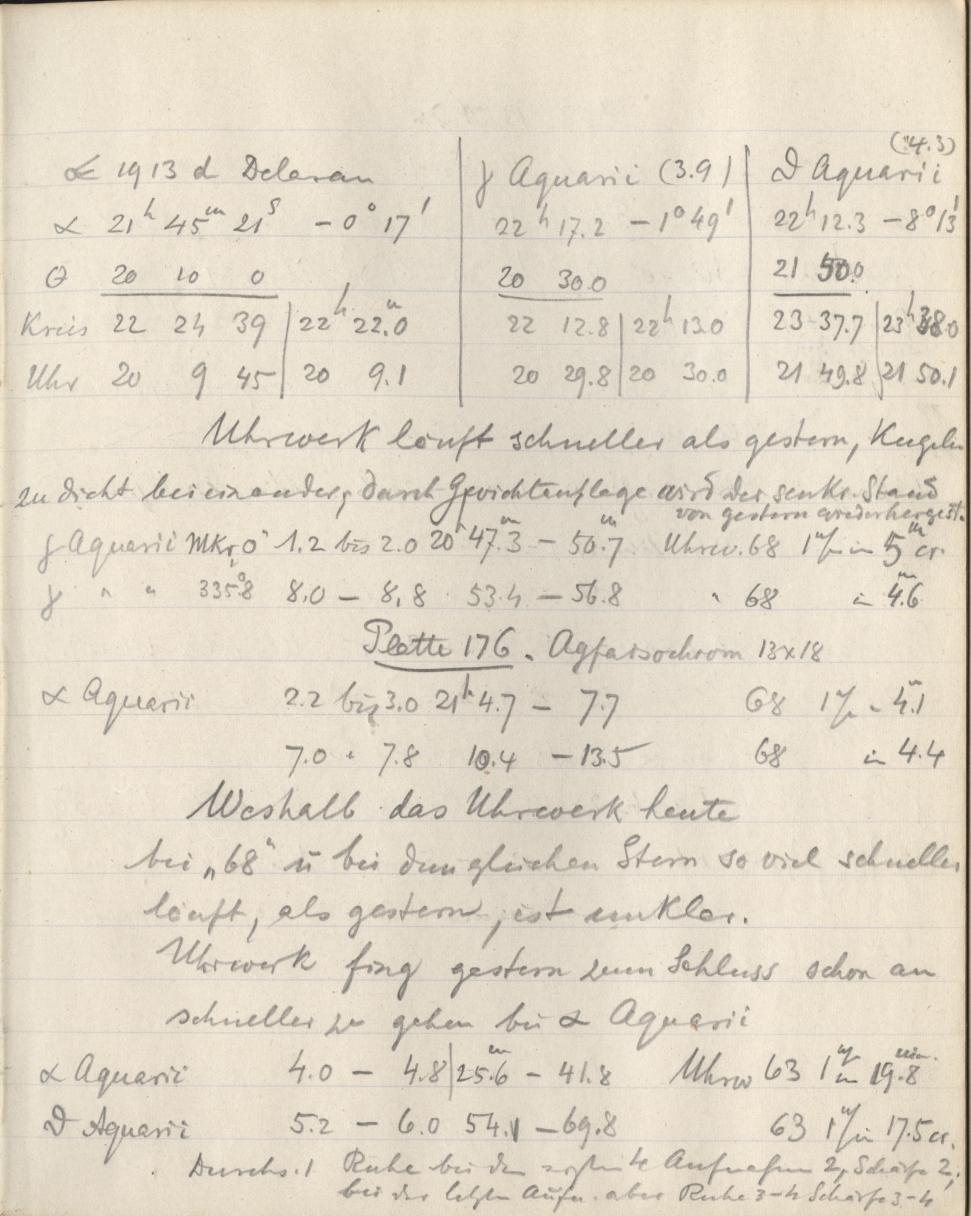 (4.3)
α 1913 d Delavan | γ Aquarii (3.9) | ϑ Aquarii
α 21h 45m 21s − 0° 17' | 22h 17.2 − 1° 49' | 22h 12.3 − 8° 13'
Θ 20 10 0 | 20 30.0 | 21 50.0
Kreis 22 24 39 | 22h 22.0m | 22 12.8 | 22h 13.0 | 23 37.7 | 23h 38.0
Uhr 20 9 45 | 20 9.1 | 20 29.8 | 20 30.0 | 21 49.8 | 21 50.1
Uhrwerk läuft schneller als gestern, Kugeln
zu dicht beieinander, durch Gewichtauflage wird der senkr. Stand
von gestern wiederhergest.
γ Aquarii Mkr 0° 1.2 bis 2.0 20h 47.3m − 50.7m Uhrw. 68 1w in 5m cr.
γ " " 335°.8 8.0 − 8.8 53.4 − 56.8 " 68 in 4.6m
Platte 176. Agfaisochrom 13x18
α Aquarii 2.2 bis 3.0 21h 4.7 − 7.7 68 1w in 4.1m
7.0 " 7.8 10.4 − 13.5 68 in 4.4
Weshalb das Uhrwerk heute
bei „68" u bei dem gleichen Stern so viel schneller
läuft, als gestern, ist unklar.
Uhrwerk fing gestern zum Schluss schon an
schneller zu gehen bei α Aquarii
α Aquarii 4.0 − 4.8 | 25.6m − 41.8 Uhrw 63 1w in 19.8min.
ϑ Aquarii 5.2 − 6.0 54.1 − 69.8 63 1w in 17.5 cr.
Durchs. 1 Ruhe bei den ersten 4 Aufnahmen 2, Schärfe 2,
bei der letzten Aufn. aber Ruhe 3-4 Schärfe 3-4